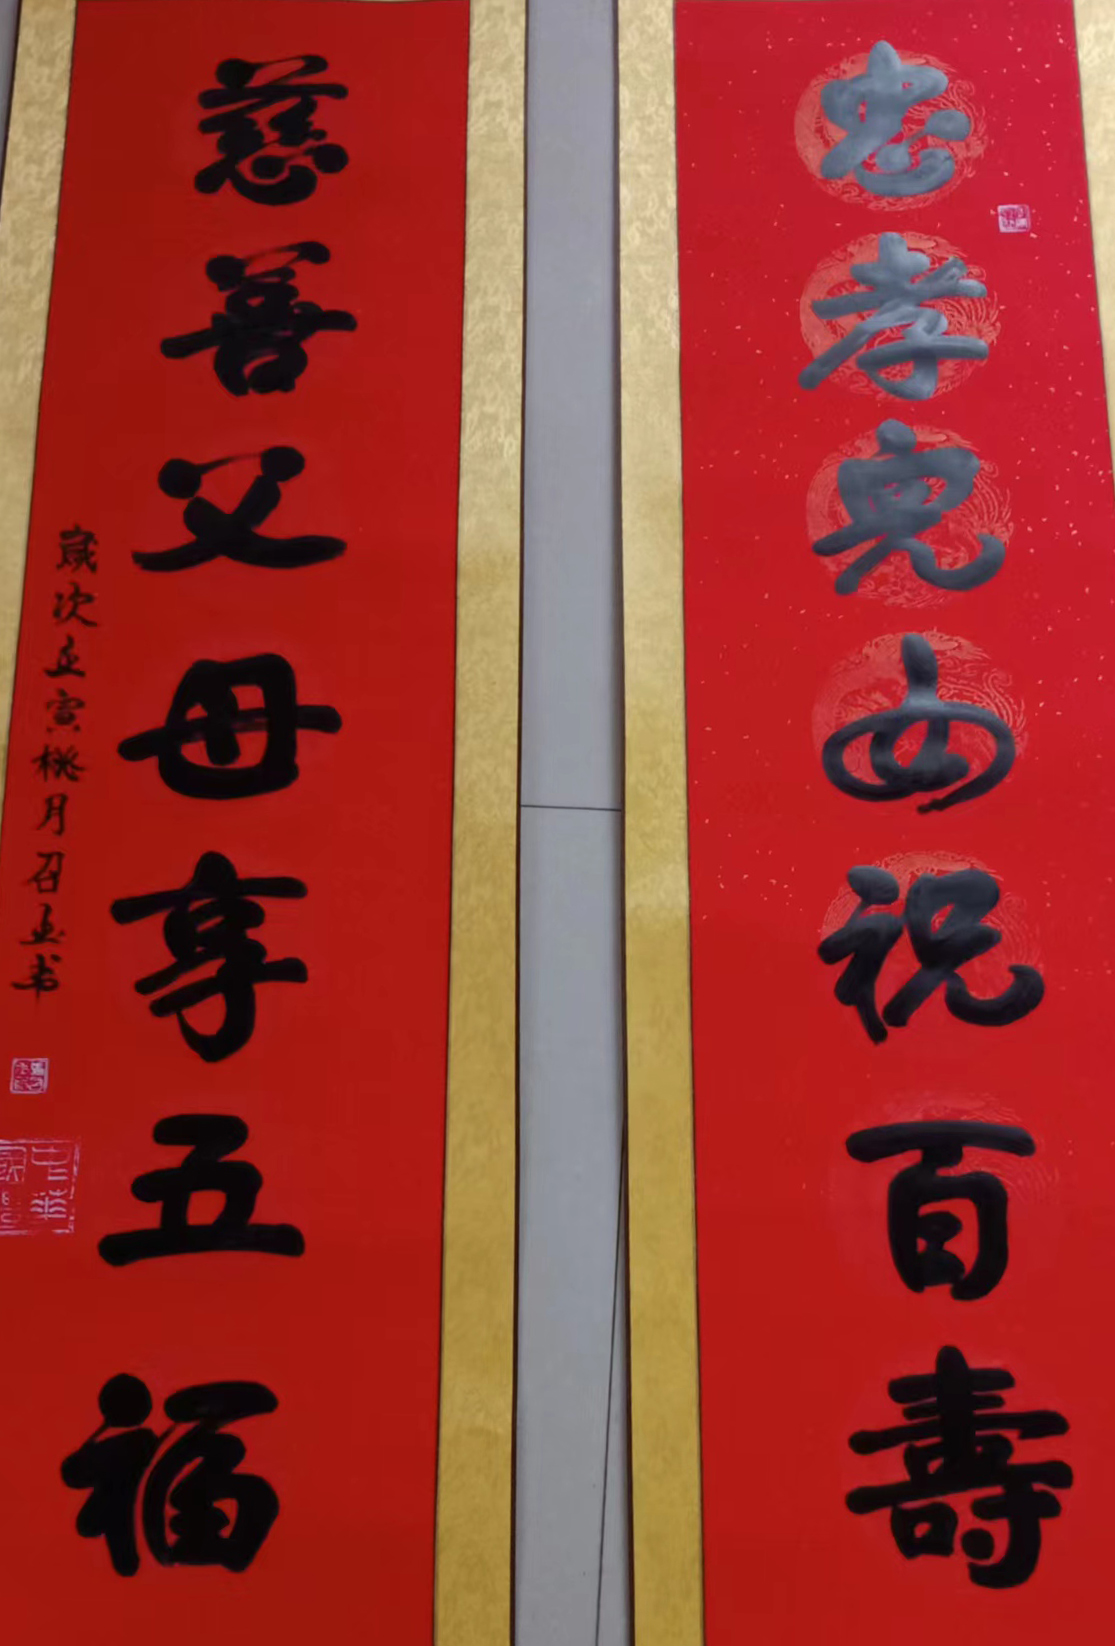 忠孝兒女祝百壽
慈善父母享五福
歲次壬寅桃月召玉书